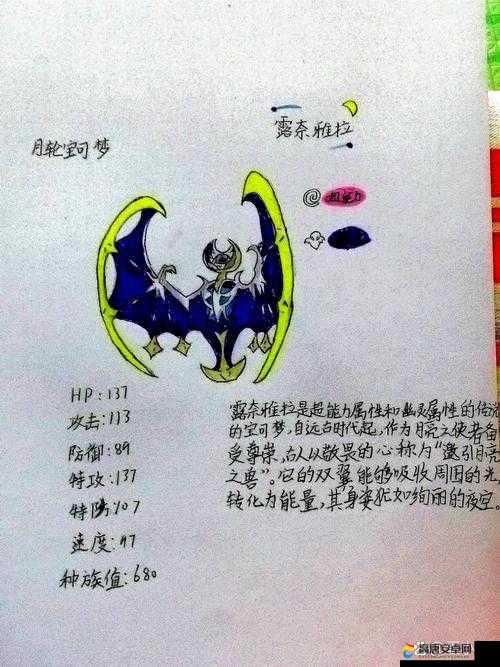 露奈雅拉
月轮宝可梦
超能力
HP:137
攻击:113
防御:89
特攻:137
特防:107
速度:97
种族值:680
露奈雅拉是超能力属性和幽灵属性的传说
的宝可梦,自远古时代起,作为月亮之使者备
受尊崇,古人以敬畏的心称为“邀引月亮
之兽”。它的双翼能够吸收周围的光,
转化为能量,其身姿犹如绚丽的夜空。